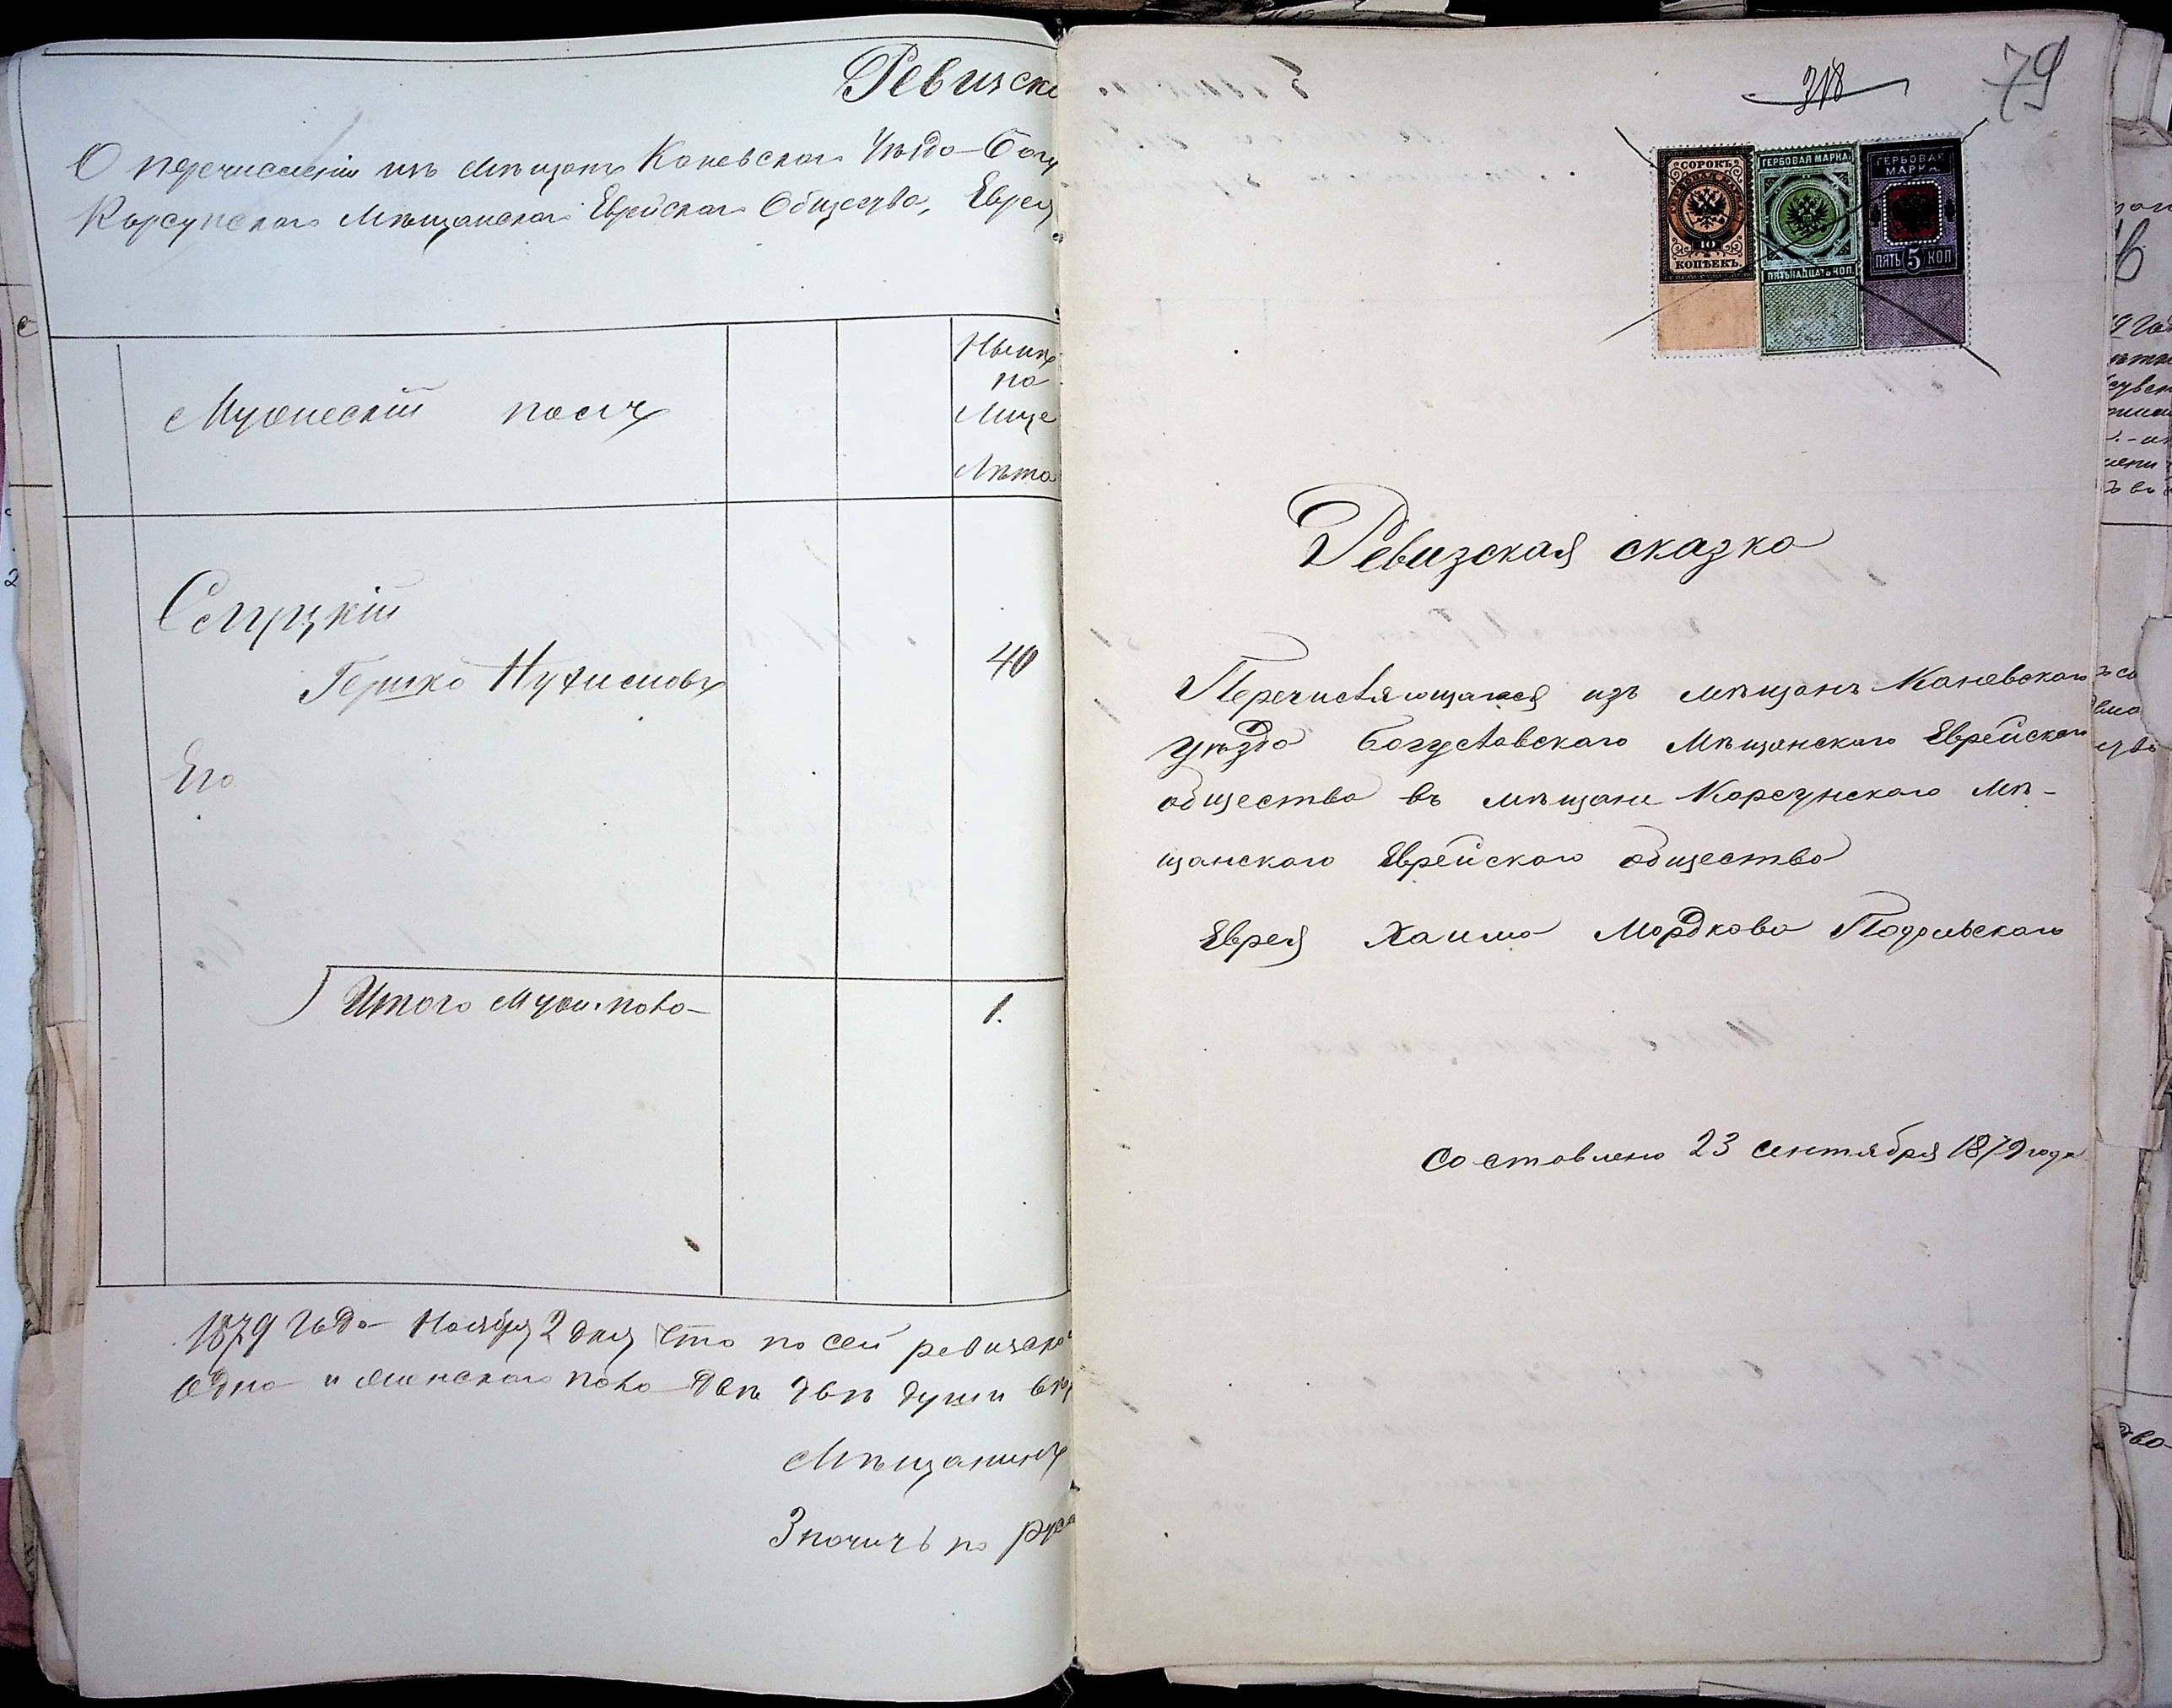 Ревизск
О перечисленіи изъ Мѣщанъ Каневскаго Уѣзда Богу
Корсунскаго Мѣщанскаго Еврейскаго Общества, Еврея
Мужескій полъ
Нынѣ
на
Лице
Лѣта
Слуцкій
Гершко Нухимовъ
40
Его
Итого муж. пола
1.
1879 Года Ноября 2 дня Что по сей ревизско
одна и женскаго пола двѣ души
Мѣщанинъ
Значитъ по рус
318
79
СОРОКЪ
40
КОПѢЕКЪ.
ГЕРБОВАЯ МАРКА
ПЯТЬНАДЦАТЬ КОП.
ГЕРБОВАЯ
МАРКА.
ПЯТЬ 5 КОП
Ревизская сказка
Перечисляющагося изъ мѣщанъ Каневскаго
уѣзда Богуславскаго Мѣщанского Еврейскаго
общества въ мѣщане Корсунскаго мѣ-
щанскаго Еврейскаго общества
Еврея Хаима Мордкова Подольскаго
Составлена 23 сентября 1879 года